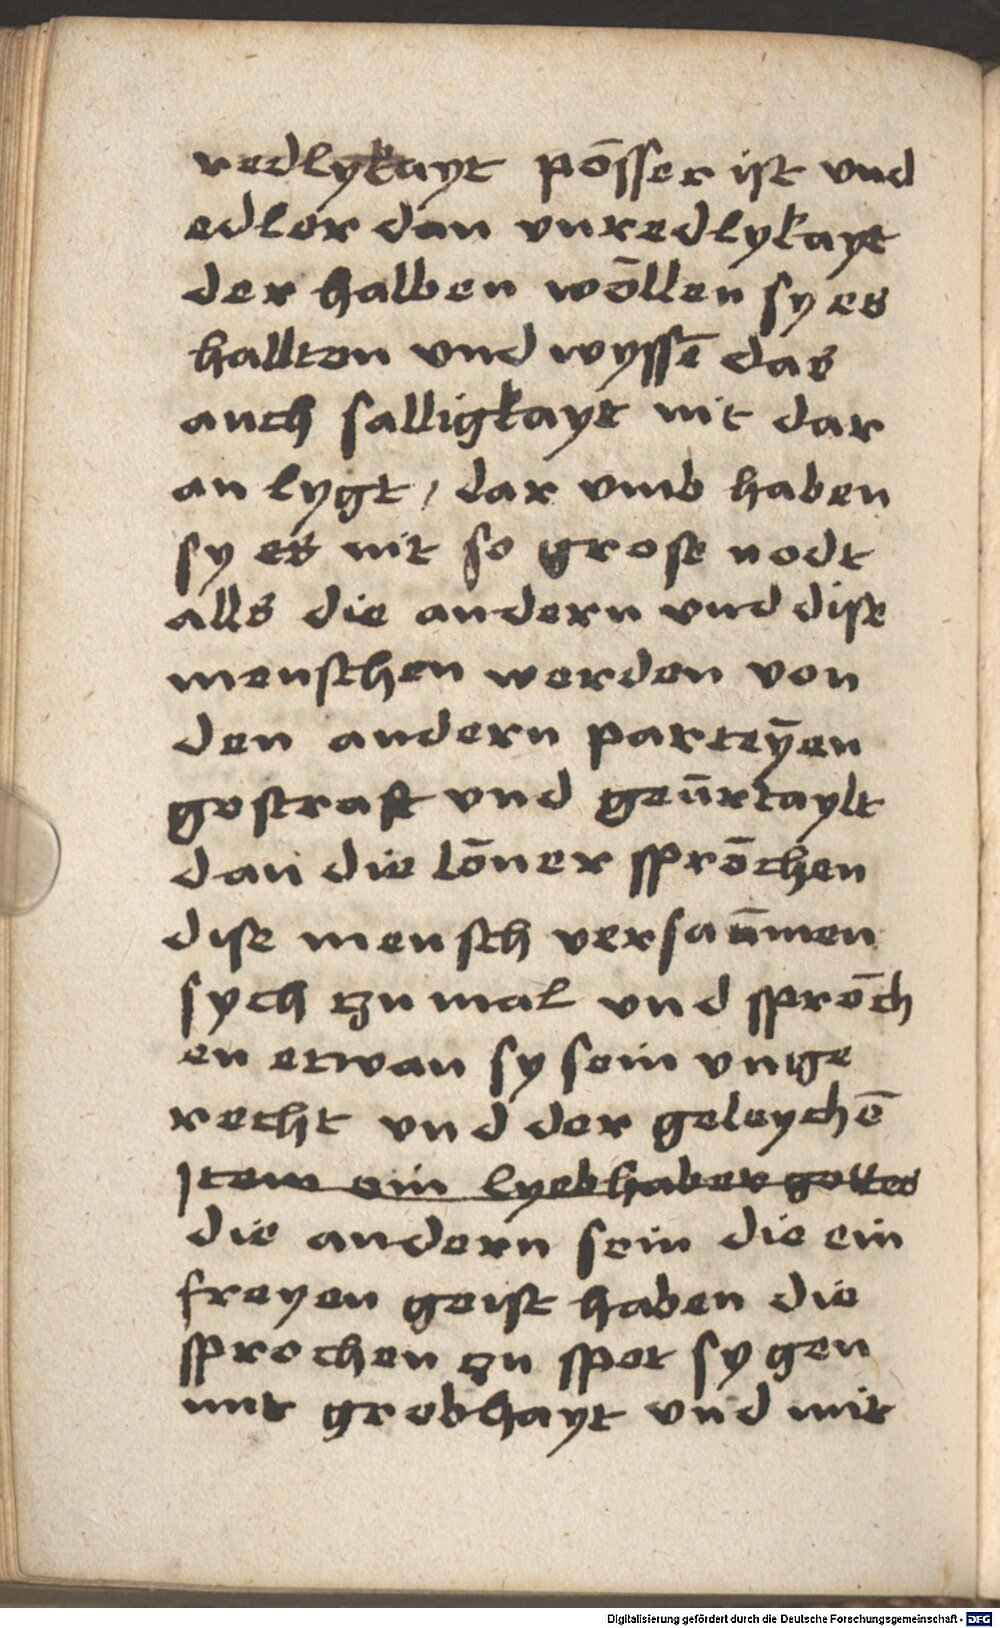 redlykayt pōsser ist vnd
edler dan vnredlykayt
der halben wōllen sy es
hallten vnd wyssē das
auch salligkayt nit dar
an lygt / dar vmb haben
sy es nit so grose nodt
alls die andern vnd dise
menschen werden von
den andern parteȳen
gestraft vnd geūrtaylt
dan die lōner sprōchen
dise mensch versaūmen
sych zu mal vnd sprōch
en etwan sy sein vnge
recht vnd der geleychē
Item ein lyebhaber gottes
die andern sein die ein
freyen geist haben die
sprochen zu spot sy gen
mit grobhayt vnd mit
Digitalisierung gefördert durch die Deutsche Forschungsgemeinschaft - DFG